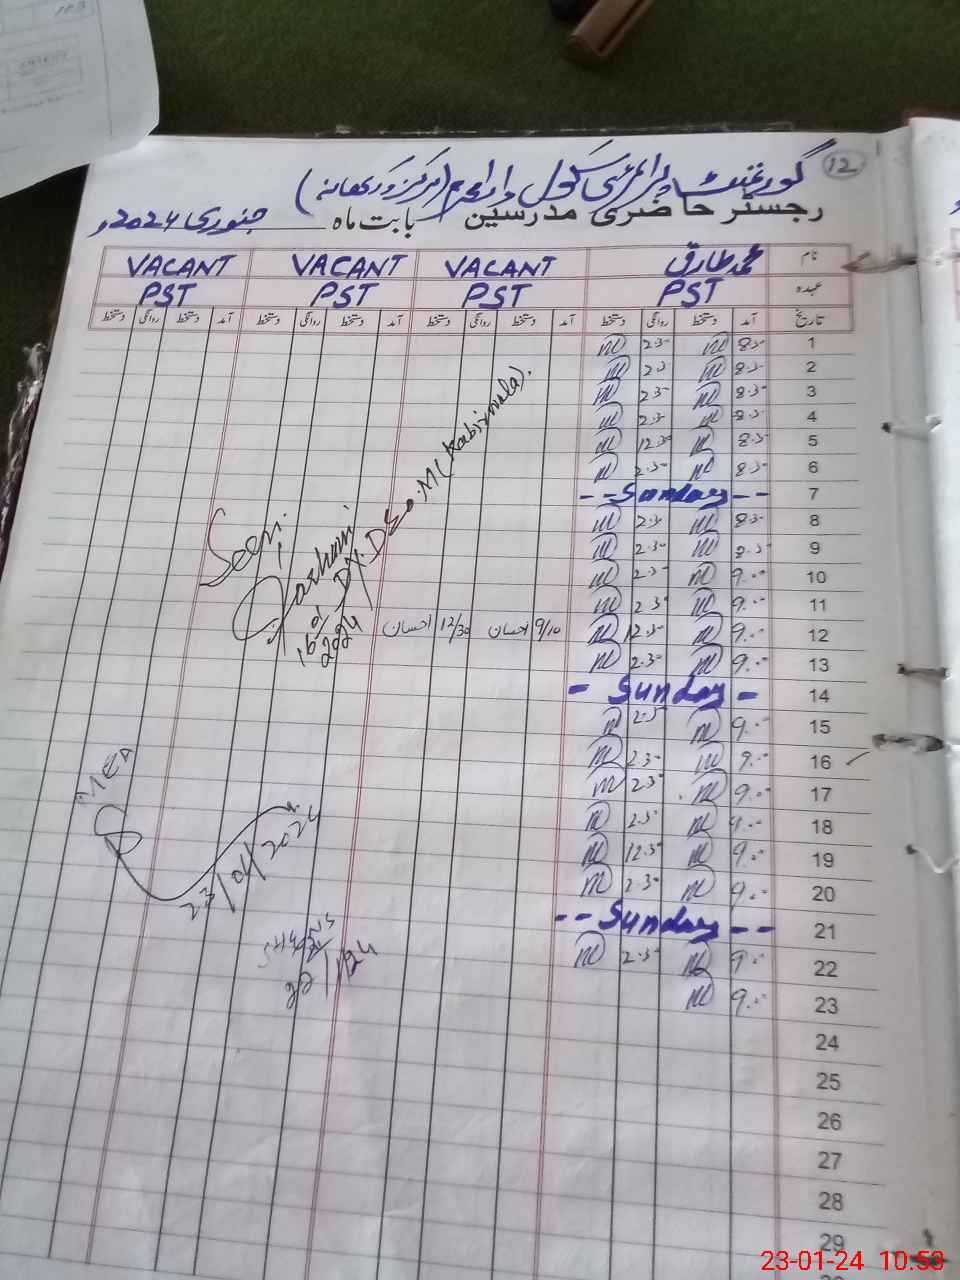 12
گورنمنٹ پرائمری سکول
رجسٹر حاضری مدرسین بابت ماہ جنوری 2024ء
نام محمد طارق VACANT VACANT VACANT
عہدہ PST PST PST PST
تاریخ آمد دستخط روانگی دستخط آمد دستخط روانگی دستخط آمد دستخط روانگی دستخط آمد دستخط روانگی دستخط
1 8.30 2.30
2 8.30 2.30
3 8.30 2.30
4 8.30 2.30
5 8.30 12.30
6 8.30 2.30
7 --Sunday--
8 8.30 2.30
9 8.30 2.30
10 9.00 2.30
11 9.00 2.30
12 9.00 12.30 9/10 احسان 12/30 احسان
13 9.00 2.30
14 - Sunday -
15 9.00 2.30
16 9.00 2.30
17 9.00 2.30
18 9.00 2.30
19 9.00 12.30
20 9.00 2.30
21 --Sunday--
22 9.00 2.30
23 9.00
24
25
26
27
28
29
Seen
16/01/2024
MEA
23/01/2024
22/1/24
23-01-24 10:53